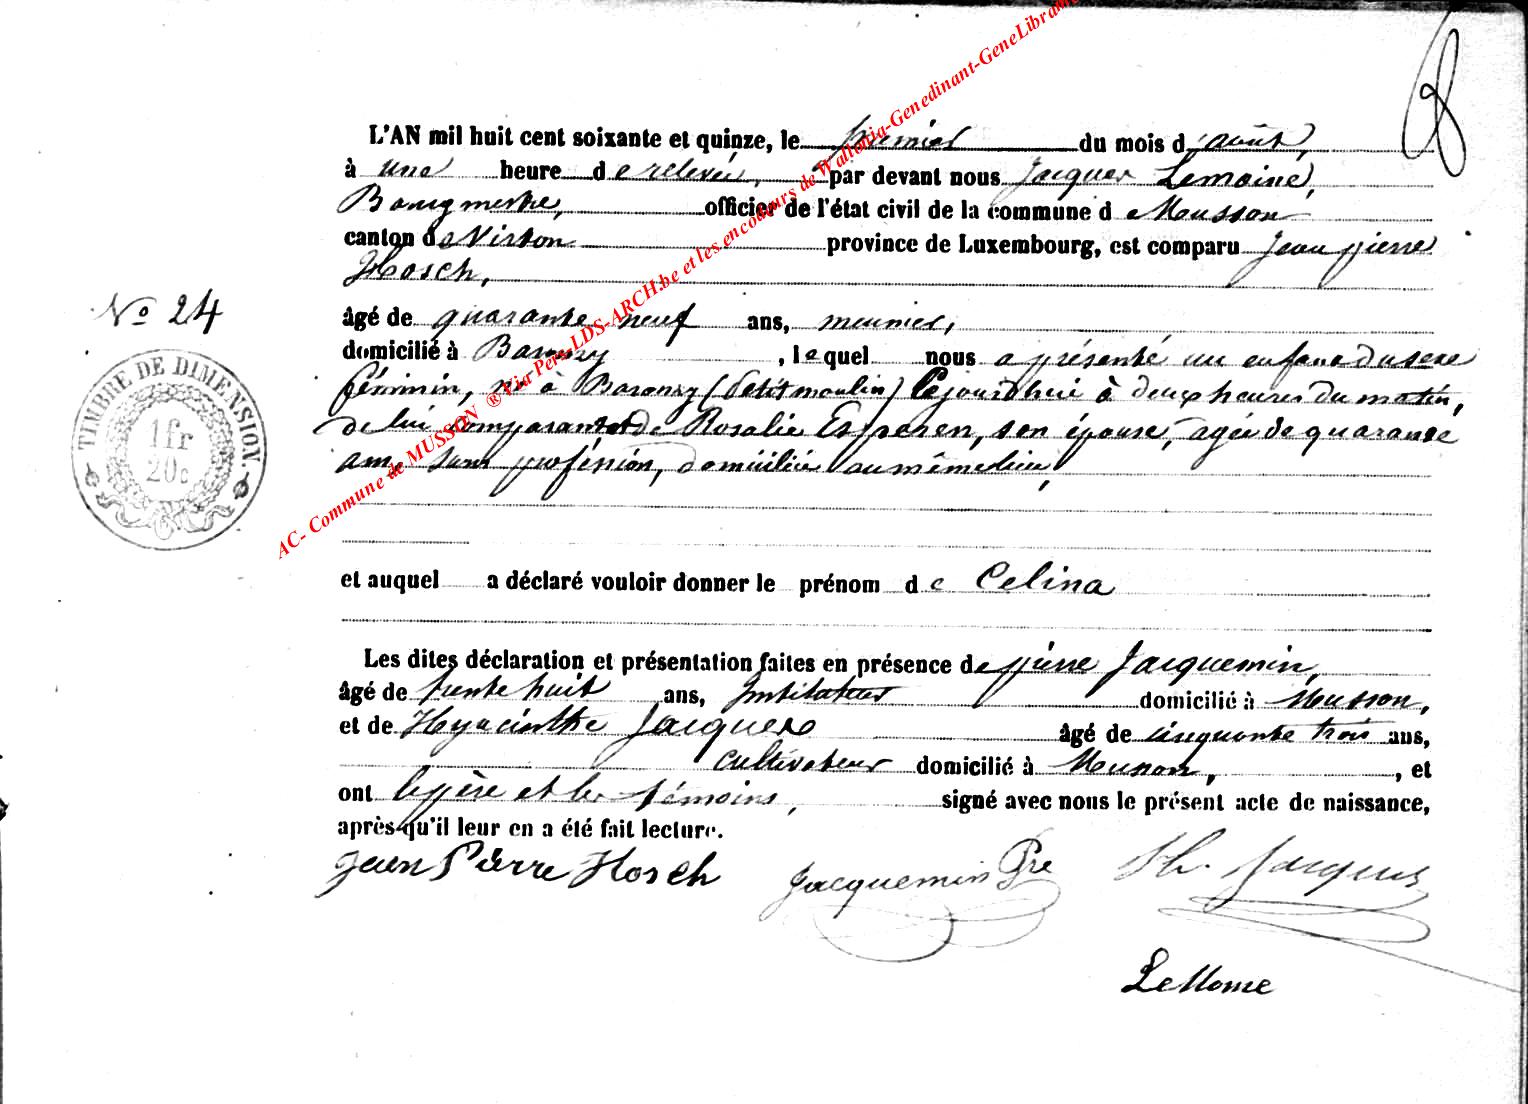 8
L'AN mil huit cent soixante et quinze, le premier du mois d'août,
à une heure de relevée, par devant nous Jacques Lemoine,
Bourgmestre, officier de l'état civil de la commune de Musson
canton de Virton province de Luxembourg, est comparu Jean pierre
Hosch,
No 24
âgé de quarante neuf ans, meunier,
domicilié à Baranzy , lequel nous a présenté un enfant du sexe
féminin, né à Baranzy (petit moulin) Cejourd'hui à deux heures du matin,
de lui comparant et de Rosalie Esperen, son épouse, agée de quarante
ans, sans profession, domiciliée au même lieu,
TIMBRE DE DIMENSION.
1 fr
20c
et auquel a déclaré vouloir donner le prénom de Celina
Les dites déclaration et présentation faites en présence de pierre Jacquemin,
âgé de trente huit ans, Instituteur domicilié à Musson,
et de Hyacinthe Jacques âgé de cinquante trois ans,
cultivateur domicilié à Musson, , et
ont le père et les témoins, signé avec nous le présent acte de naissance,
après qu'il leur en a été fait lecture.
Jean Pierre Hosch Jacquemin Pre H. Jacques
LeMoine
AC- Commune de MUSSON ® Via Pers-LDS-ARCH.be et les encodeurs de Wallonia-Genedinant-GeneLibramont